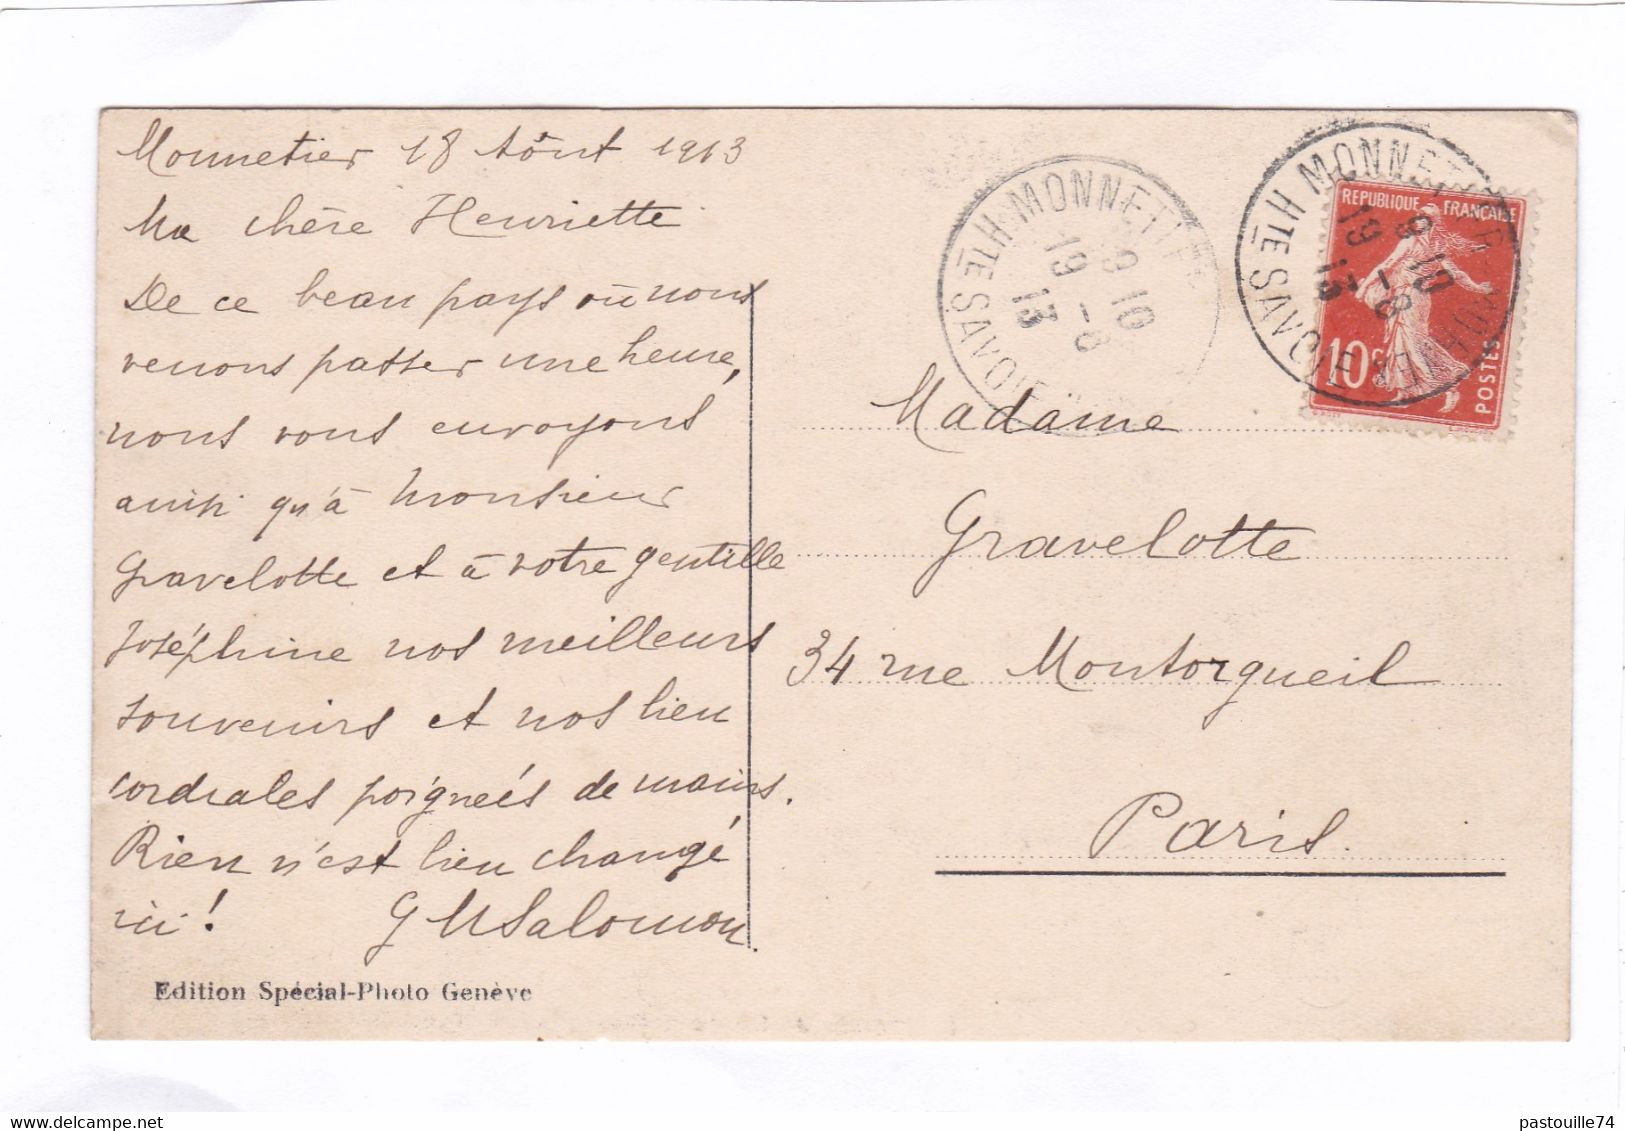 Monnetier 18 Aôut 1913
Ma chère Henriette
De ce beau pays où nous
venons passer une heure,
nous vous envoyons
ainsi qu'à Monsieur
Gravelotte et à votre gentille
Joséphine nos meilleurs
souvenirs et nos bien
cordiales poignées de mains.
Rien n'est bien changé
ici! G M Salomon.
Edition Spécial-Photo Genève
MONNETIER
9 10
19 -8
13
HTE SAVOIE
MONNETIER-MORNEX
9 10
19 -8
13
HTE SAVOIE
REPUBLIQUE FRANÇAISE
10c
POSTES
Madame
Gravelotte
34 rue Montorgueil
Paris.
pastouille74